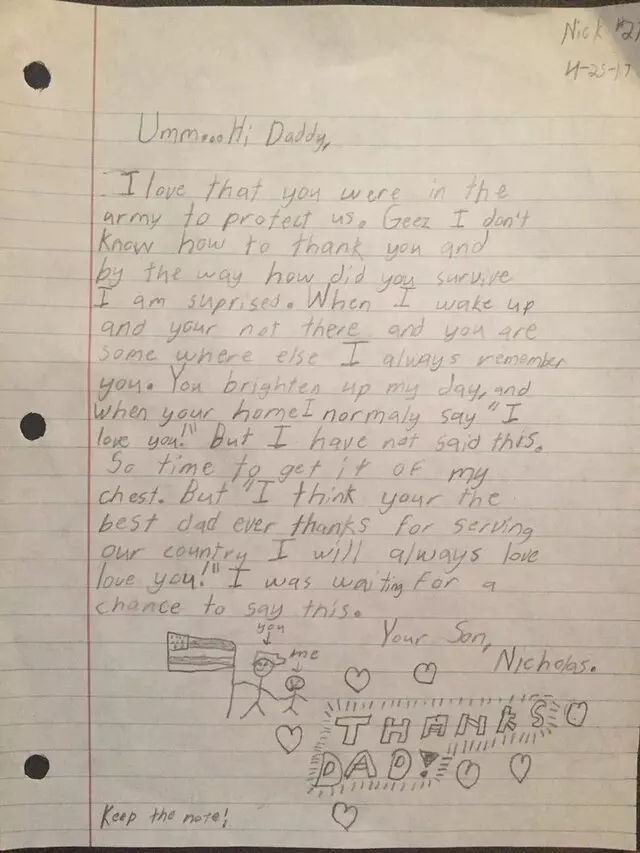 Nick #21
4-25-17
Umm...Hi Daddy,
I love that you were in the
army to protect us. Geez I don't
know how to thank you and
by the way how did you survive
I am suprised. When I wake up
and your not there and you are
some where else I always remember
you. You brighten up my day, and
when your home I normaly say "I
love you!" But I have not said this.
So time to get it of my
chest. But "I think your the
best dad ever thanks for serving
our country I will always love
love you!" I was waiting for a
chance to say this.
Your Son,
Nicholas.
you
me
THANKS
DAD!
Keep the note!